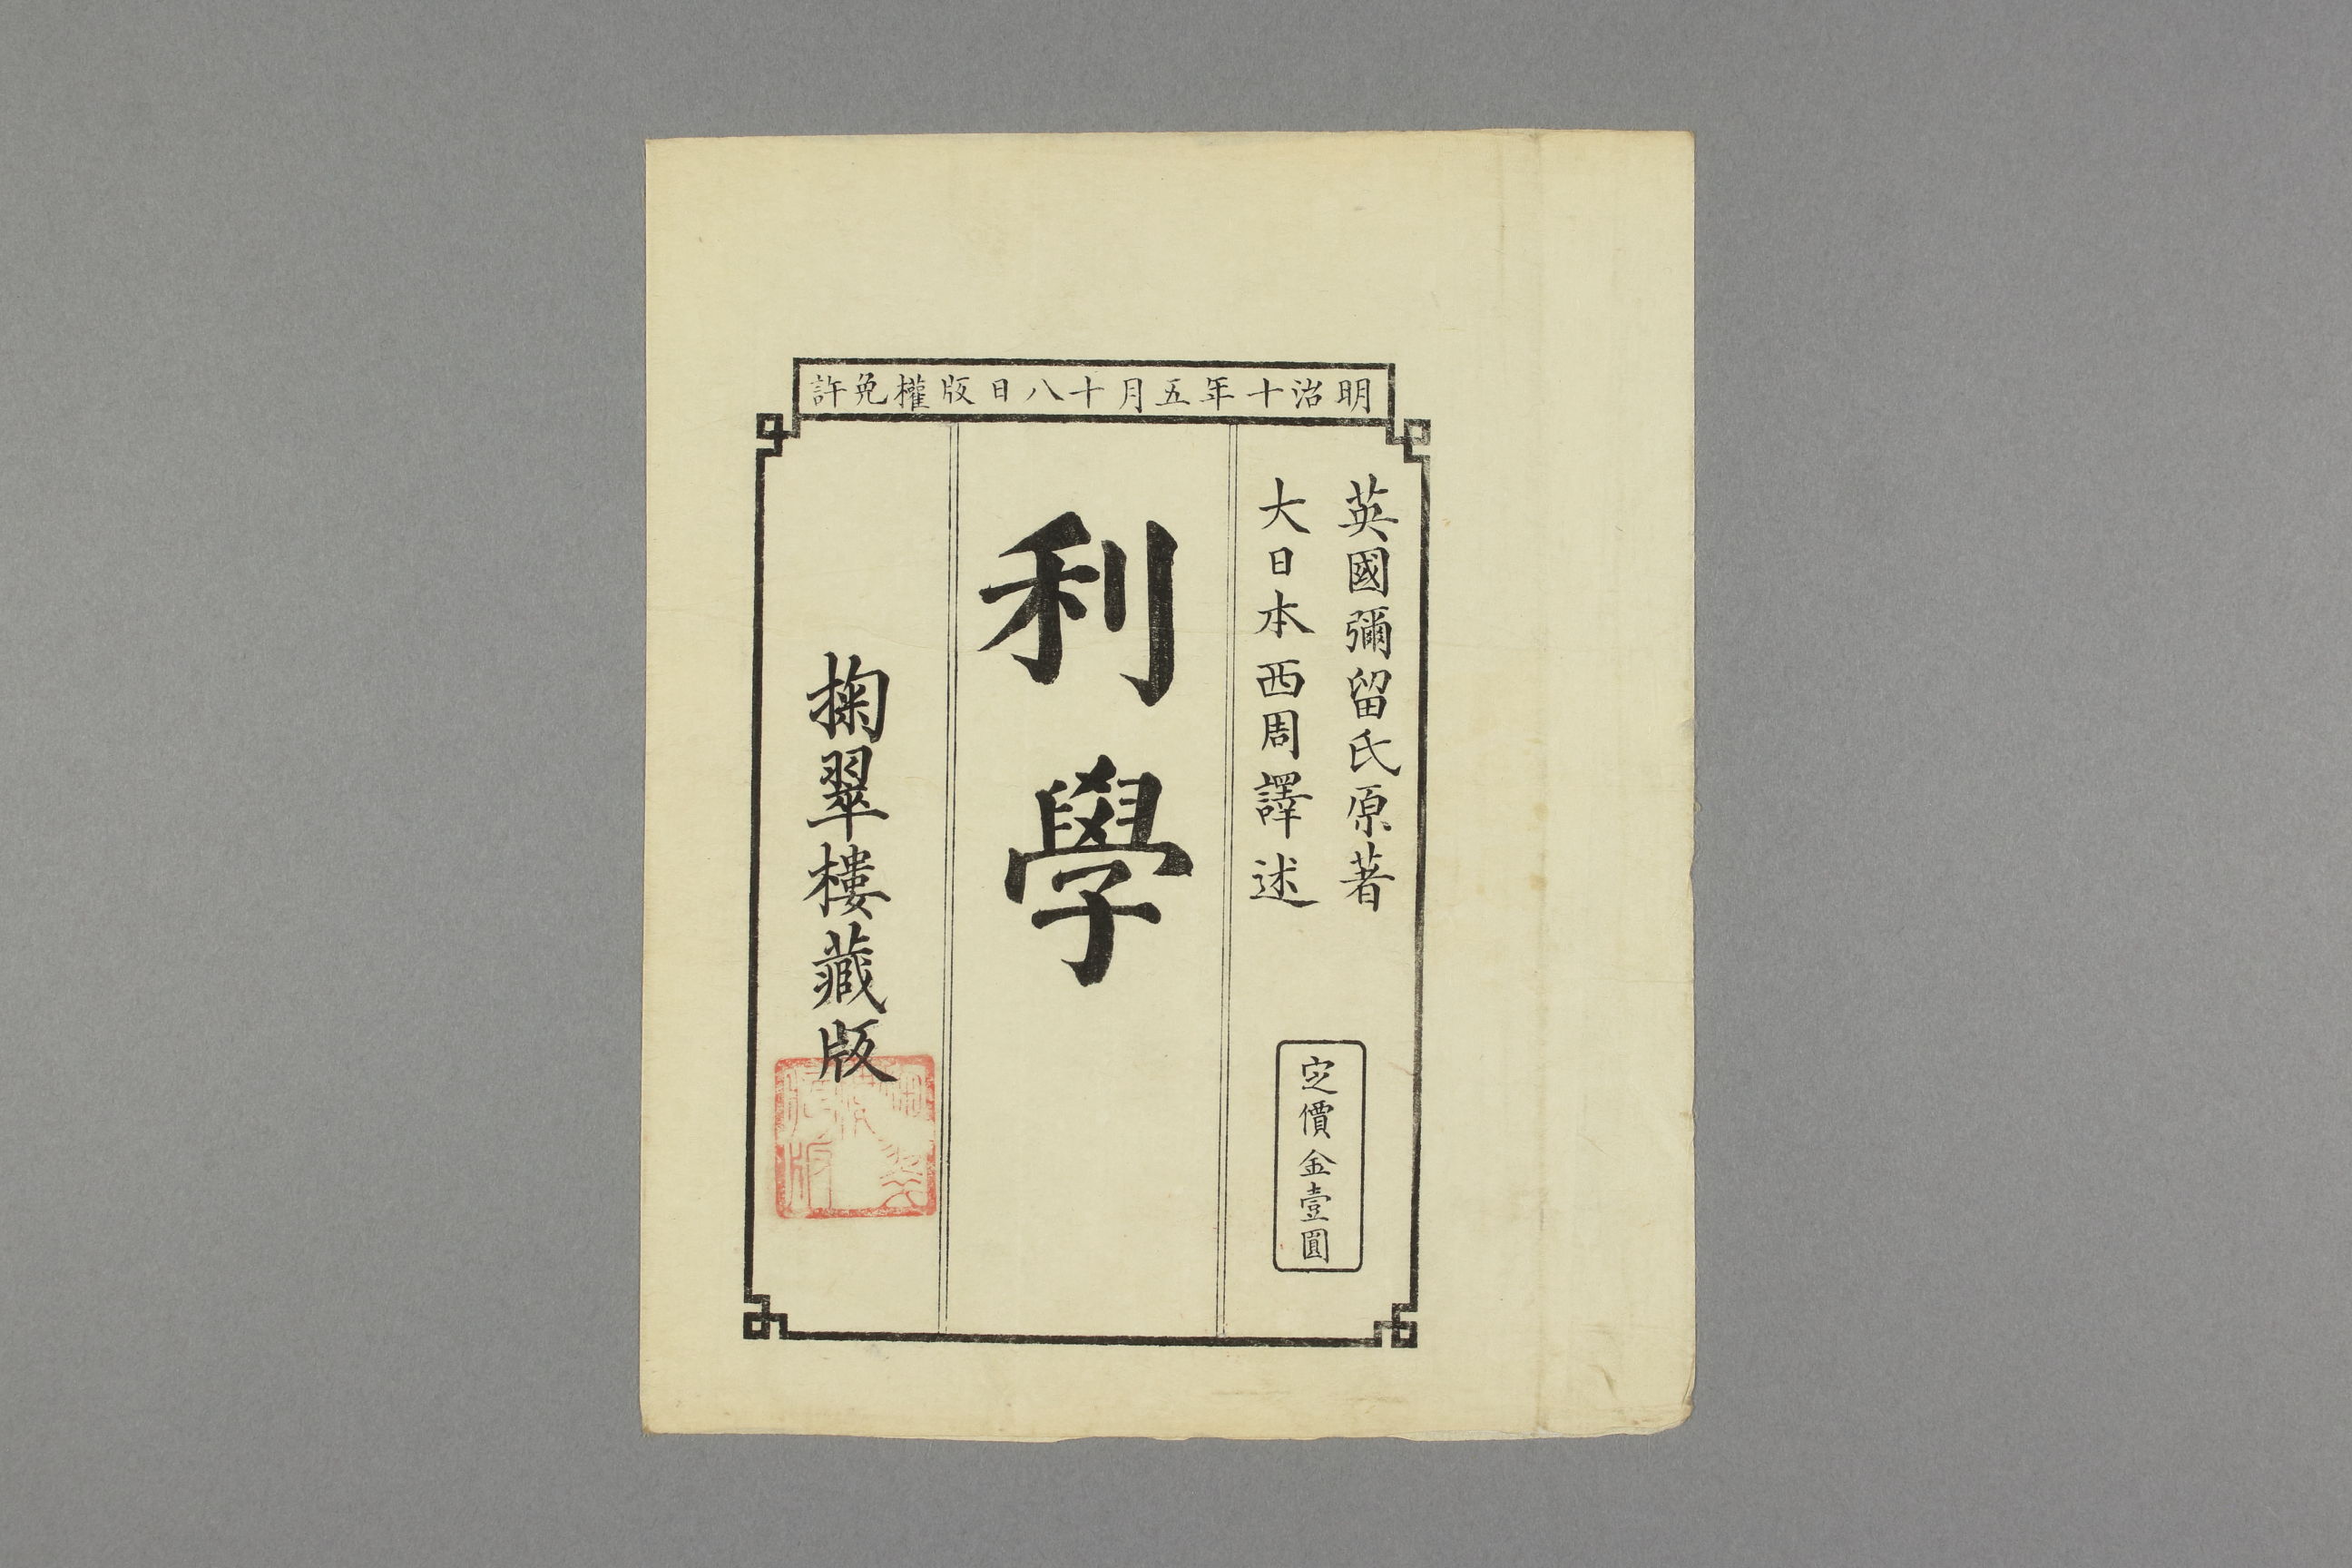 明治十年五月十八日版權免許
英國彌留氏原著
大日本西周譯述
定價金壹圓
利學
掬翠樓藏版